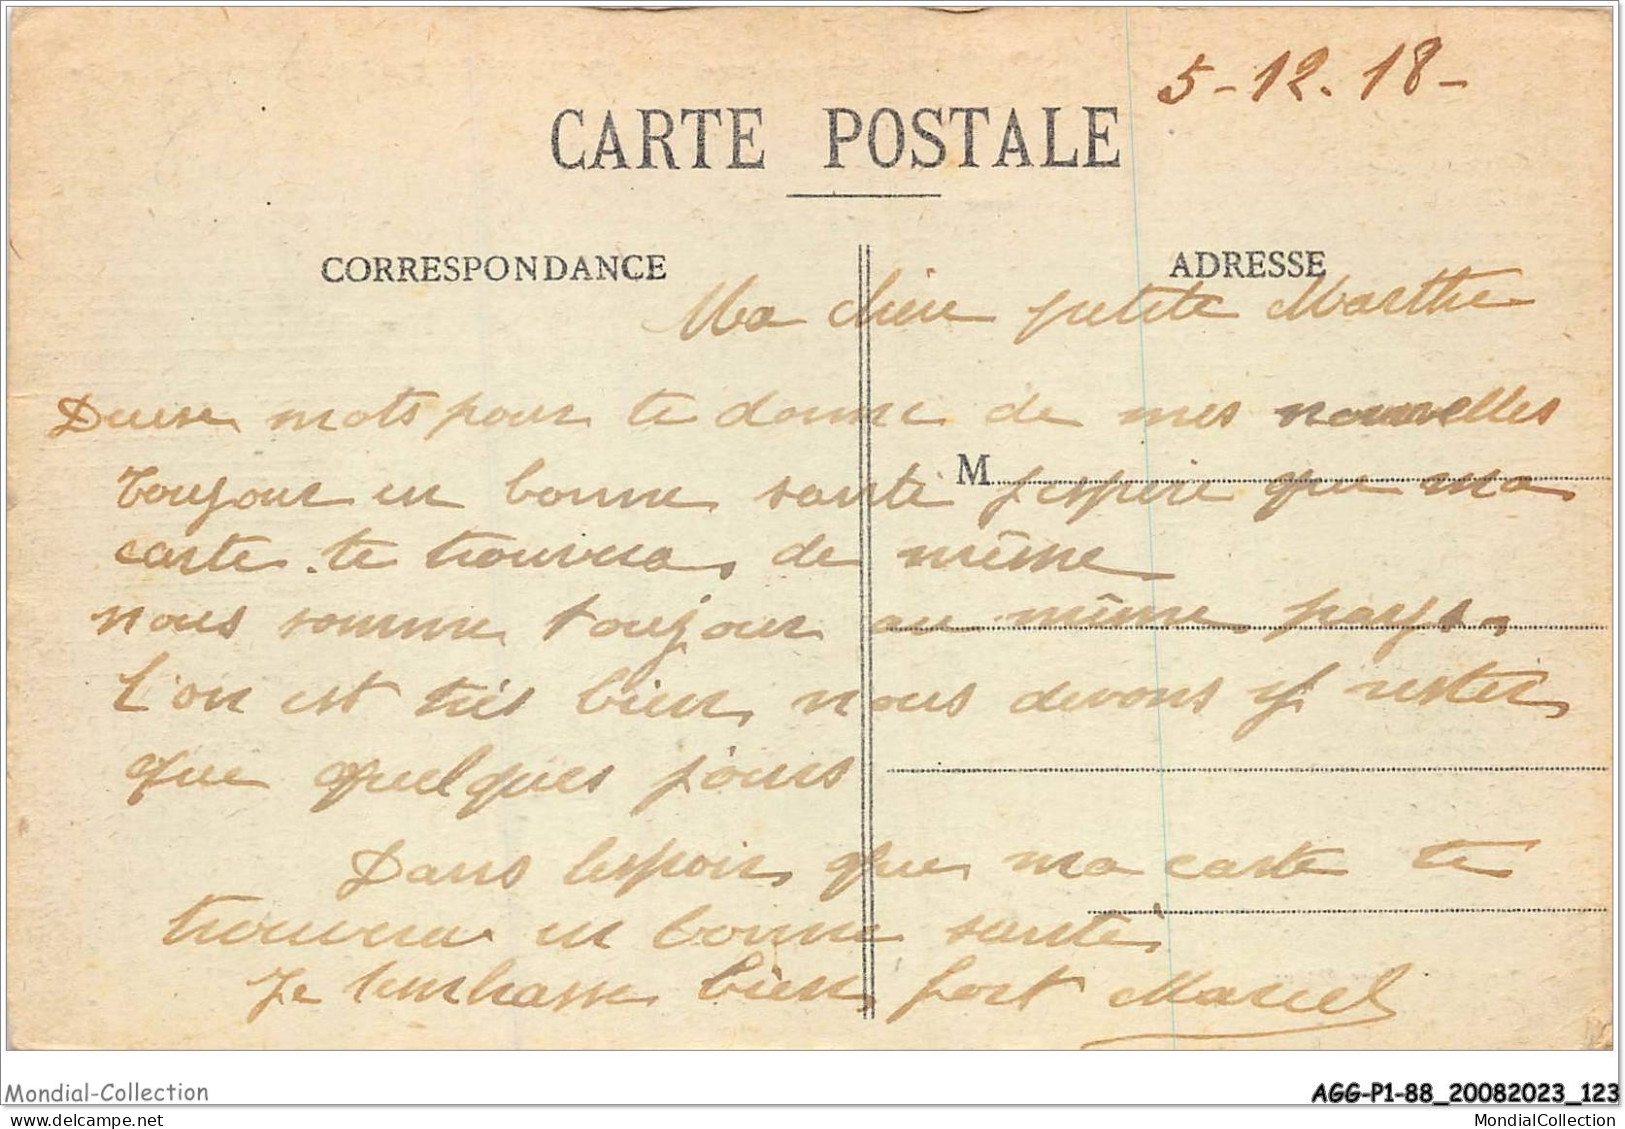 5-12.18-
CARTE POSTALE
CORRESPONDANCE
ADRESSE
Ma chère petite Marthe
Deux mots pour te donne de mes nouvelles
M
Toujour en bonne santé j'espère que ma
carte te trouvera de même
nous somme toujour au même pays.
l'on est très bien nous devons y rester
que quelques jours
Dans l'espoir que ma carte te
trouvera en bonne santé
Je t'embrasse bien fort Marcel
Mondial-Collection
AGG-P1-88_20082023_123
www.delcampe.net
MondialCollection